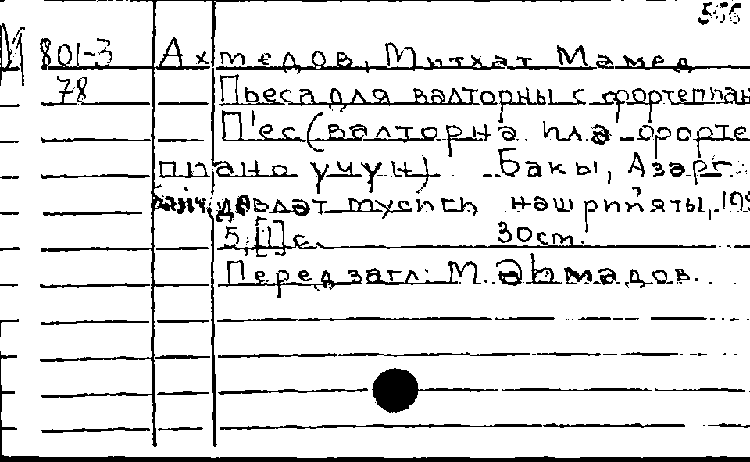 566
М 801-3 Ахмедов, Митхат Мамед
78 Пьеса для валторны с фортепиан
П'ес (валторна илә форте
пиано үчүн) Бакы, Азәрб.
дөвләт мусиги нәшрийяты, 195
5, [1] с. 30 cm.
Перед загл: М. Әһмәдов.